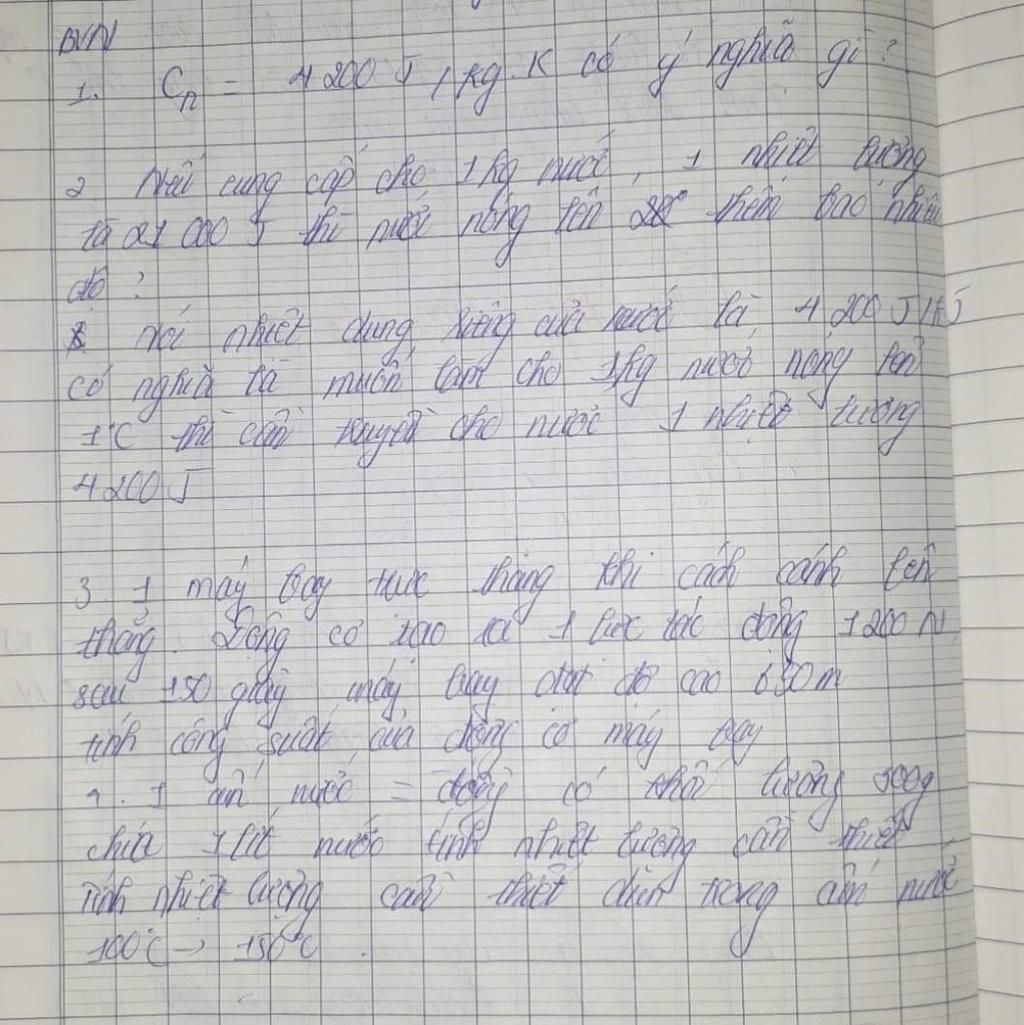 BVN
1. Cn = 4 200 J / kg.K có ý nghĩa gì ?
2 Nếu cung cấp cho 1 kg nước, 1 nhiệt lượng
là 21 000 J thì nước nóng lên thêm bao nhiêu
độ ?
Nói nhiệt dung riêng của nước là 4 200 J
có nghĩa là muốn làm cho 1kg nước nóng lên
1°C thì cần truyền cho nước 1 nhiệt lượng
4 200 J
3. 1 máy bay trực thăng khi cất cánh lên
thẳng. Động cơ tạo ra 1 lực tác động 1 200 N
sau 150 giây máy bay đạt độ cao 650 m
tính công suất của động cơ máy bay
4. 1 ấm nước = đồng có khối lượng 300g
chứa 1 lít nước tính nhiệt lượng cần thiết
Tính nhiệt lượng cần thiết đun trong ấm nước
100°C → 150°C .